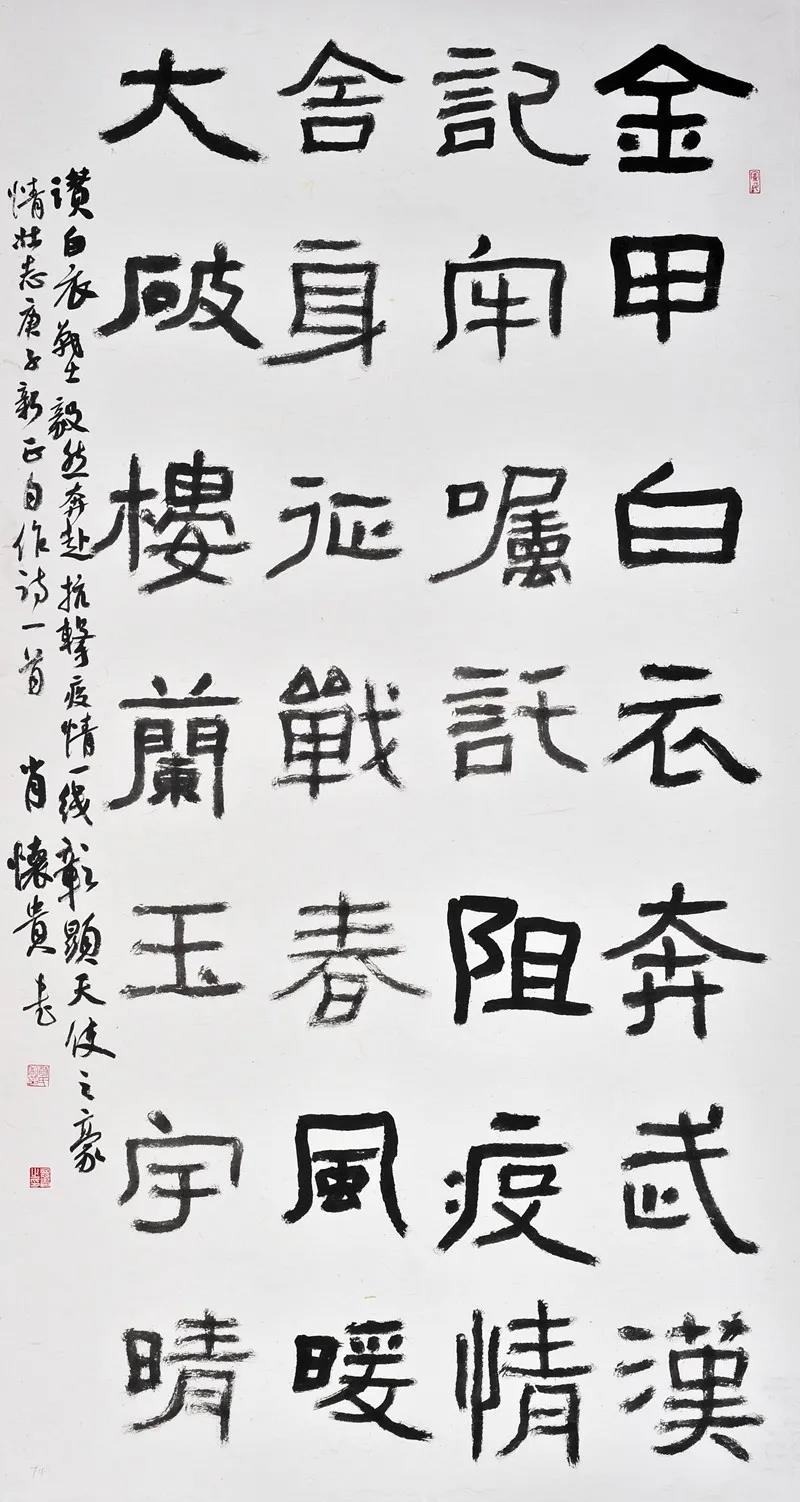 金甲白衣奔武漢
記牢囑託阻疫情
舍身征戰春風暖
大破樓蘭玉宇晴
讚白衣戰士毅然奔赴抗擊疫情一线彰顯天使之豪
情壯志庚子新正自作诗一首 肖懷貴书